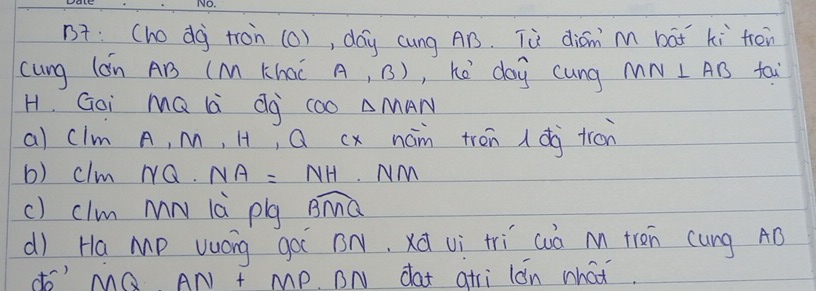 Date No.
B7: Cho đg tròn (O), dây cung AB. Từ điểm M bất kì trên
cung lớn AB (M khác A, B), kẻ dây cung MN ⊥ AB tại
H. Gọi MQ là đg cao △MAN
a) C/m A, M, H, Q cx nằm trên 1 đg tròn
b) c/m NQ. NA = NH. NM
c) c/m MN là pg \widehat{BMQ}
d) Hạ MP vuông góc BN. Xđ vị trí của M trên cung AB
để MQ. AN + MP. BN đạt gtrị lớn nhất.